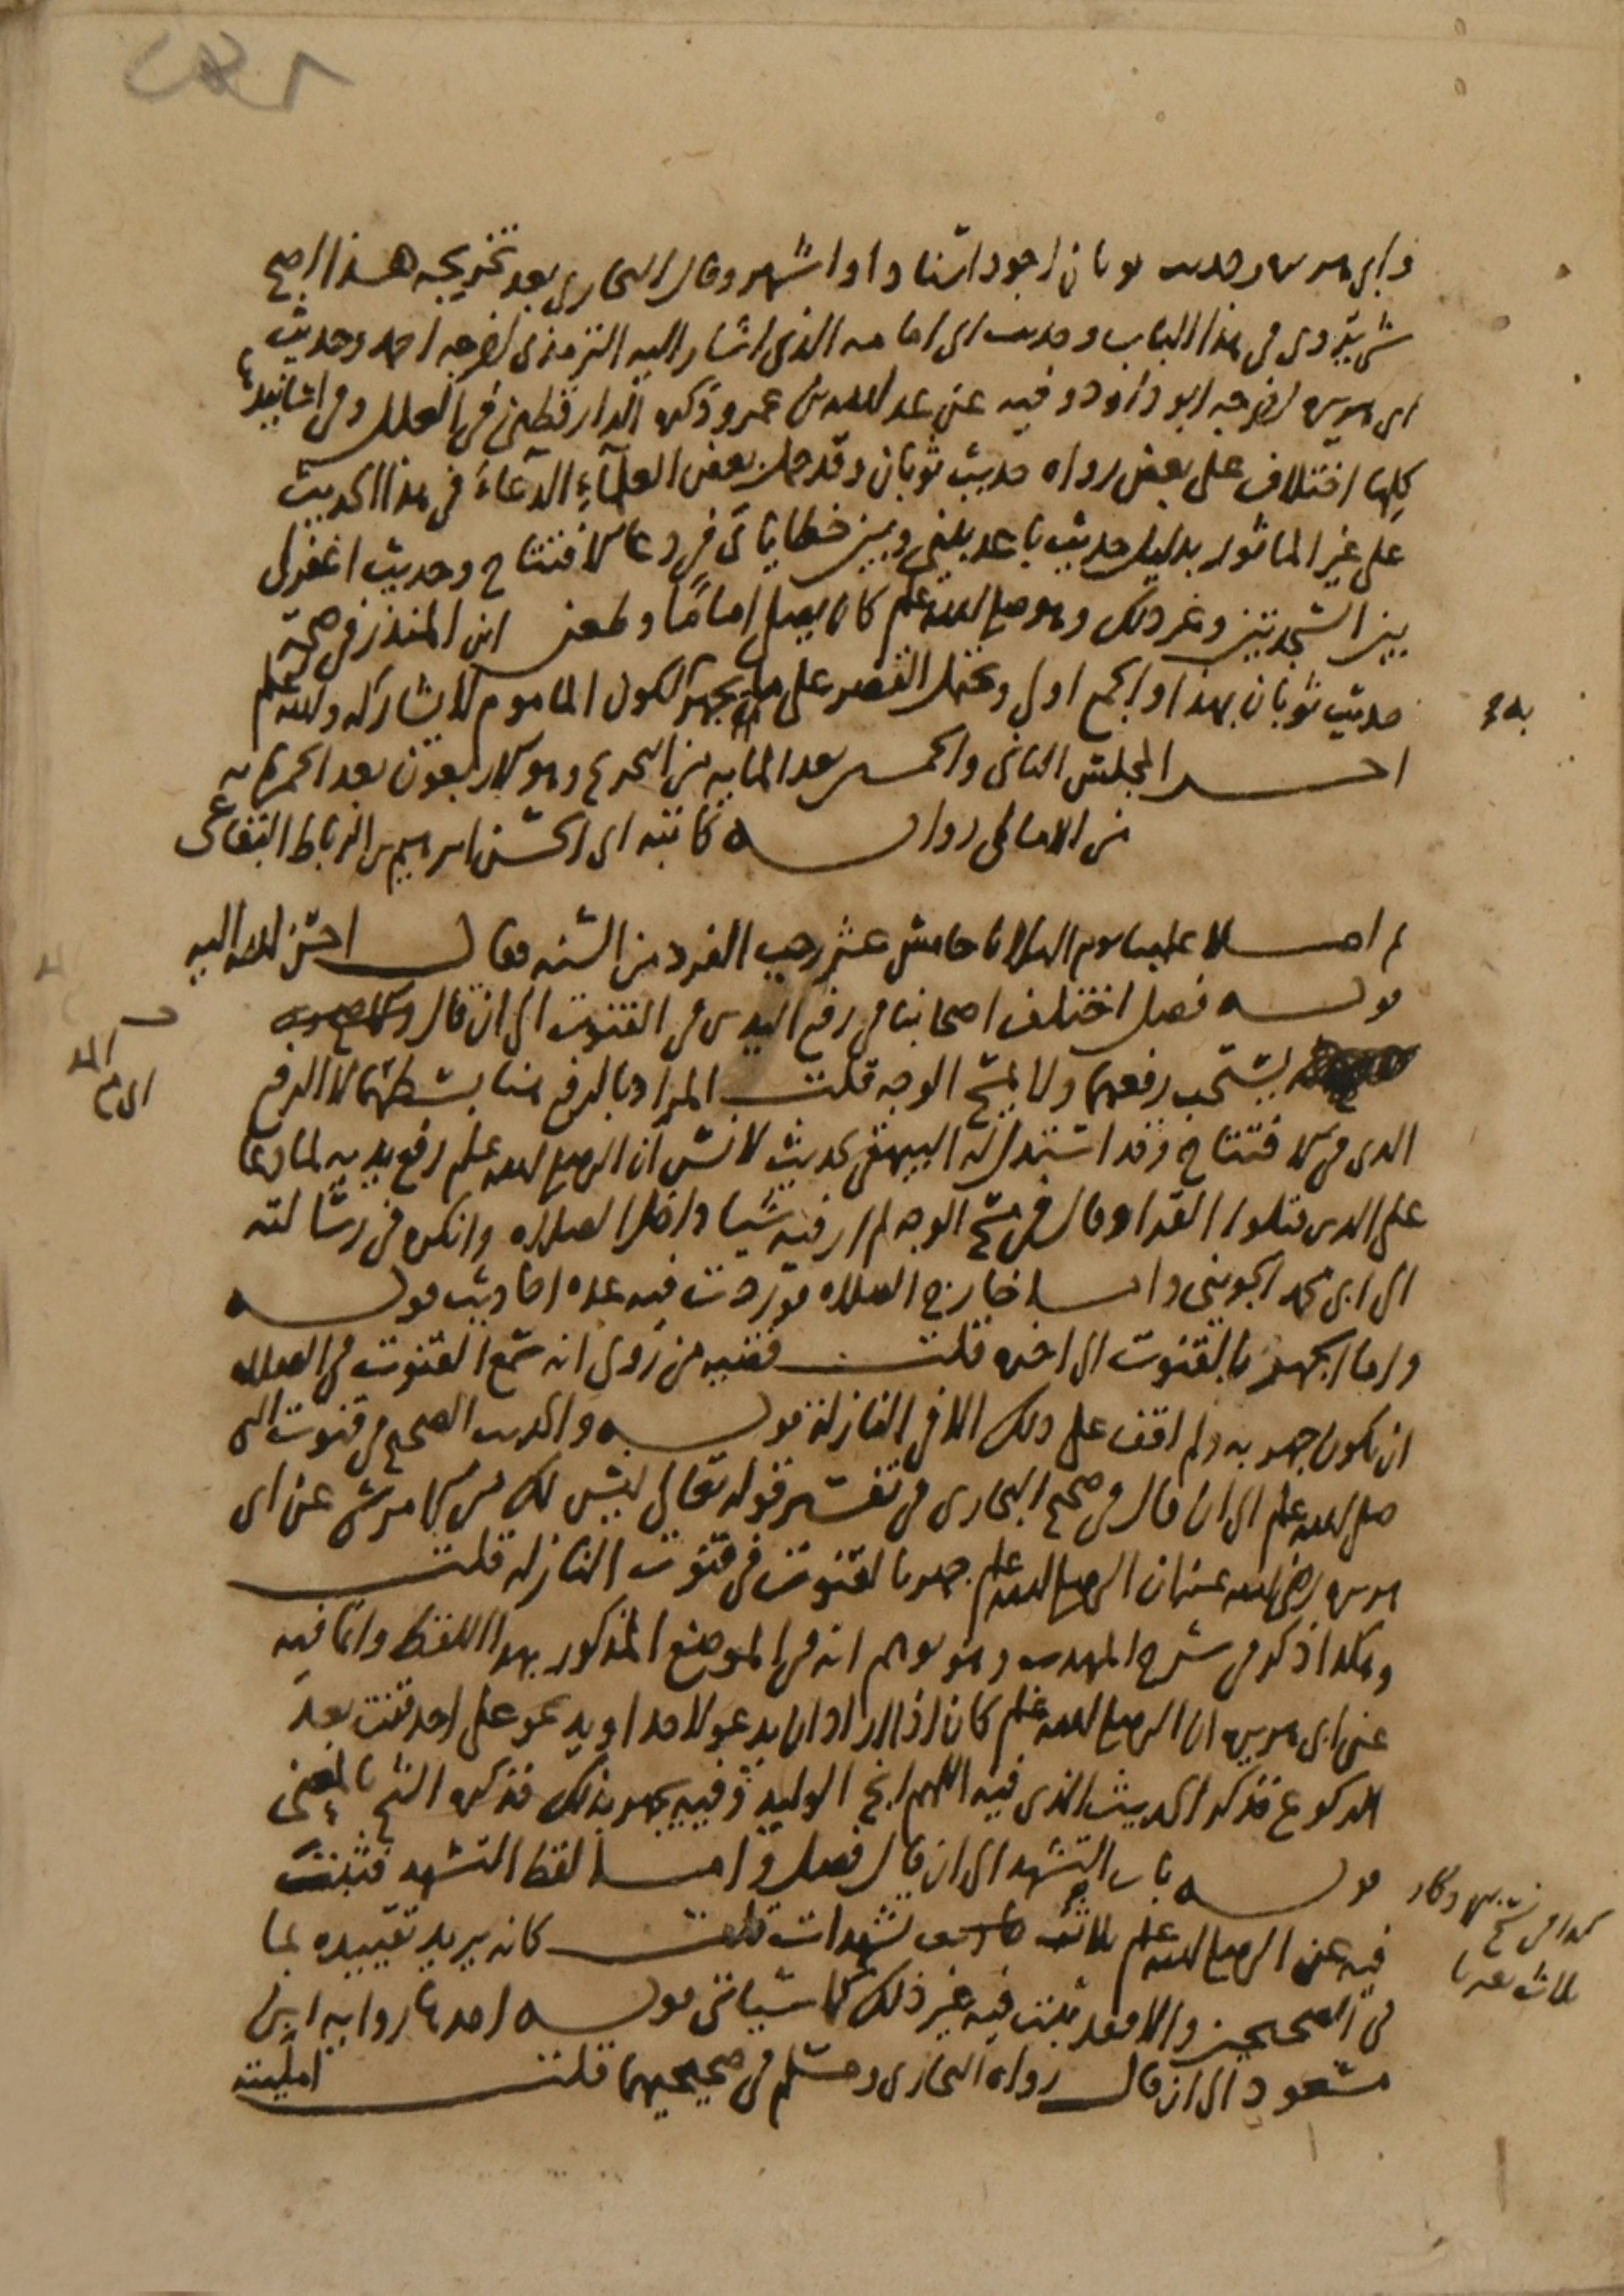 وابي هريرة وحديث ثوبان اجود اسنادا واشهر وقال البخاري بعد تخريجه هذا اصح
شي يروى في هذا الباب وحديث ابي امامه الذي اشار اليه الترمذي اخرجه احمد وحديث
ابي هريرة اخرجه ابو داود وفيه عن عبد الله بن عمرو ذكره الدارقطني في العلل وفي اسانيدها
كلها اختلاف على بعض رواه حديث ثوبان وقد حمل بعض العلماء الدعاء في هذا الحديث
على غير الماثور بدليل حديث باعد بيني وبين خطاياي في دعا الافتتاح وحديث اغفر لي
بين السجدتين وغير ذلك وهو صلى الله عليه وسلم كان يصلي اماما وطعن ابن المنذر في صحة
حديث ثوبان بهذا والجمع اولى ويحتمل القصر على ما يجهر به لكون الماموم لا يشاركه والله اعلم
اخر المجلس الثاني والخمسين بعد المايه من التخريج وهو الاربعون بعد الخمسمايه
من الامالي روايه كاتبه ابي الحسن ابراهيم بن الرباط البقاعي
ثم املا علينا يوم الثلاثا خامس عشر رجب الفرد من السنه فقال احسن الله اليه
قوله فصل اختلف اصحابنا في رفع اليدين في القنوت الى ان قال والاصح
يستحب رفعهما ولا يمسح الوجه قلت المراد بالرفع هنا بسطهما لا الرفع
الذي في الافتتاح وقد استدل له البيهقي بحديث لانس ان النبي صلى الله عليه وسلم رفع يديه لما دعا
على الذين قتلوا القرا وقال في مسح الوجه لم ار فيه شيا داخل الصلاه وانكره في رسالته
الى ابي محمد الجويني واما خارج الصلاه فوردت فيه عده احاديث قوله
واما الجهر بالقنوت الى اخره قلت قضيه من روى انه سمع القنوت في الصلاه
ان يكون جهر به ولم اقف على ذلك الا في النازلة قوله والحديث الصحيح في قنوت النبي
صلى الله عليه وسلم الى ان قال في صحيح البخاري في تفسير قوله تعالى ليس لك من الامر شي عن ابي
هريرة رضي الله عنه ان النبي صلى الله عليه وسلم جهر بالقنوت في قنوت النازله قلت
وهكذا ذكر في شرح المهذب وهو يوهم انه في الموضع المذكور بهذا اللفظ وانما فيه
عن ابي هريره ان النبي صلى الله عليه وسلم كان اذا اراد ان يدعو لاحد او يدعو على احد قنت بعد
الركوع فذكر الحديث الذي فيه اللهم انج الوليد وفيه يجهر بذلك فذكره الشيخ بالمعنى
قوله باب التشهد الى ان قال فصل واما لفظ التشهد فثبت
فيه عن النبي صلى الله عليه وسلم ثلاث تشهدات قلت كانه يريد تقييده بما
في الصحيحين والا فقد ثبت فيه غير ذلك كما سياتي قوله احدها روايه ابن
مسعود الى ان قال رواه البخاري ومسلم في صحيحيهما قلت امليته